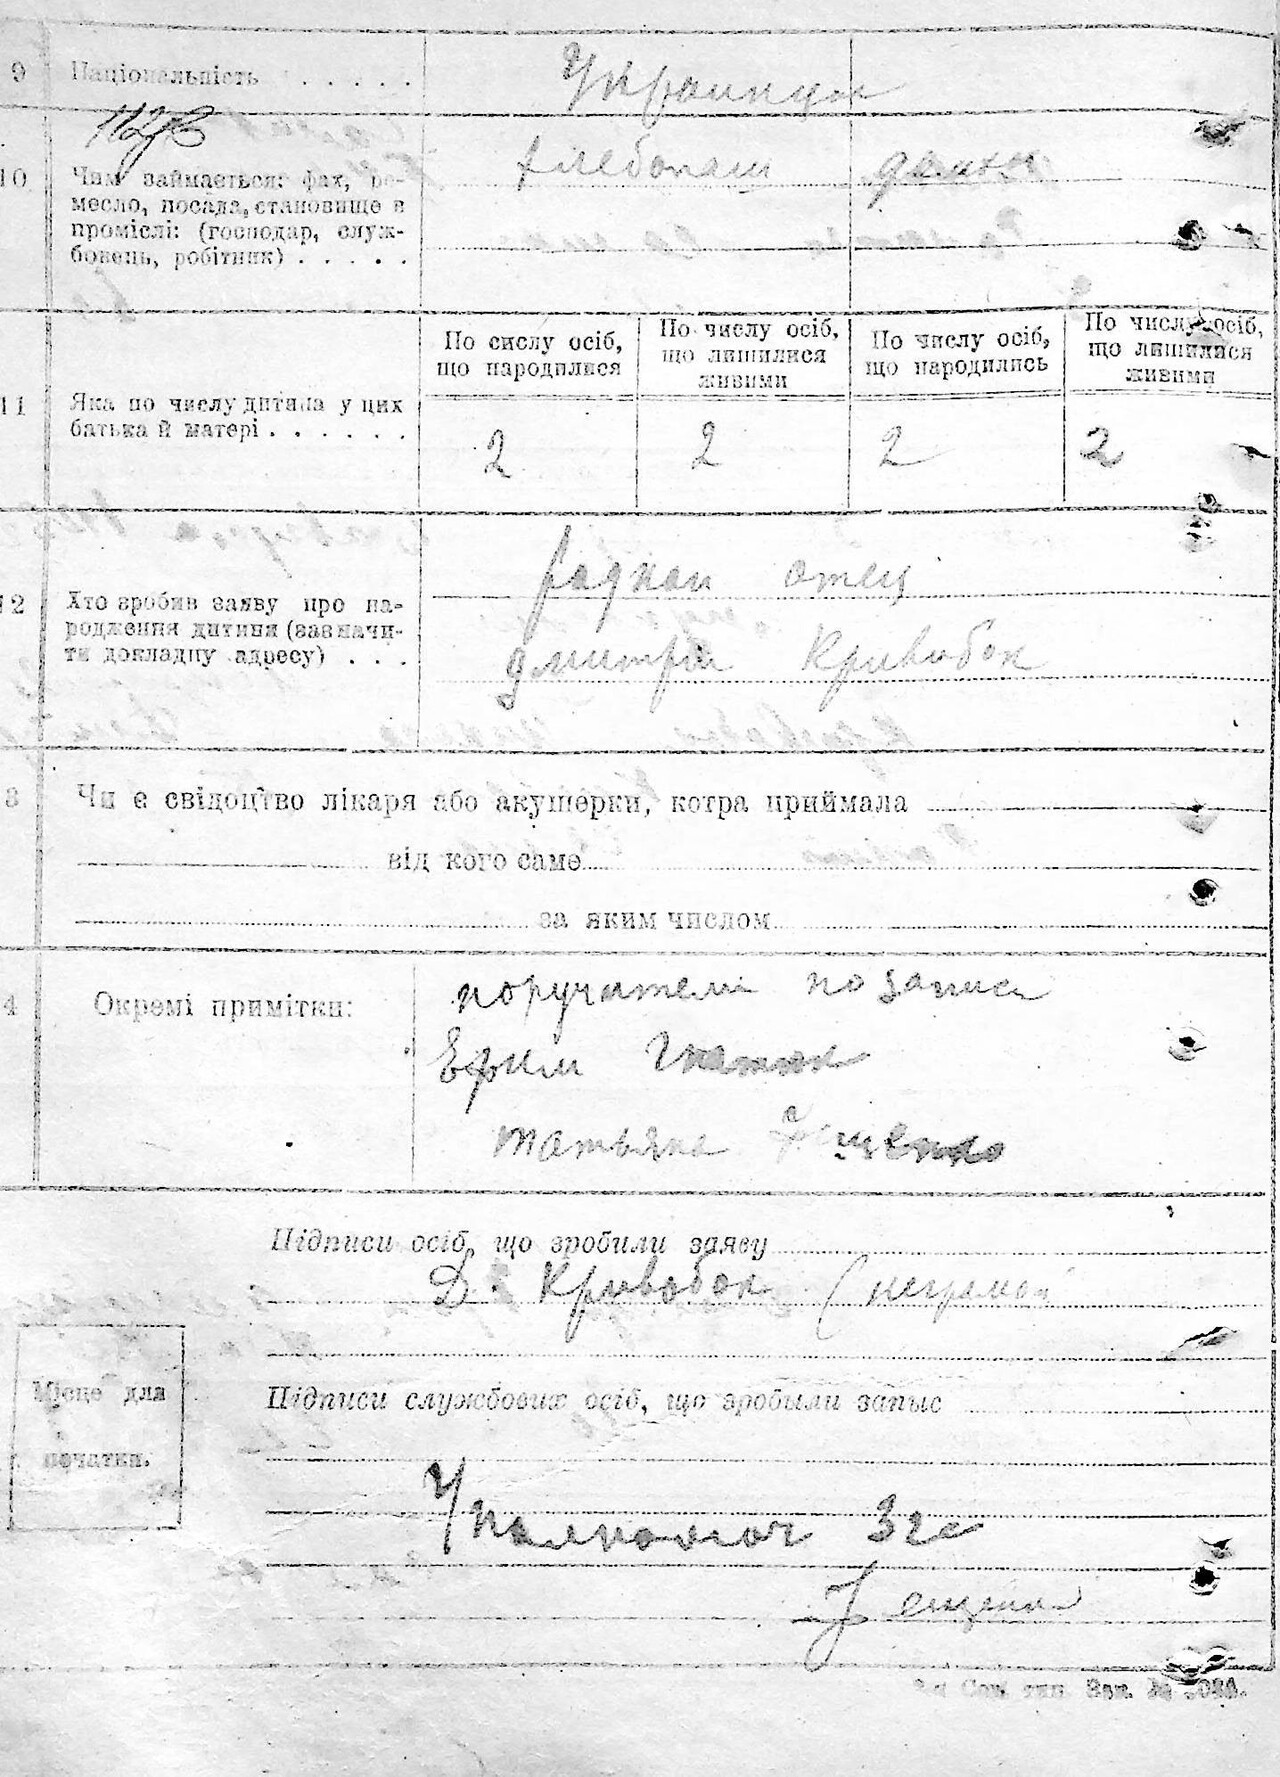 9 Національність . . . . . Украинцы
10 Чим займається: фах, ре-
месло, посада, становище в
проміслі: (господар, служ-
бовець, робітник) . . . . .
хлебопаш
11 Яка по числу дитина у цих
батька й матері . . . . . .
По сислу осіб, що народилися
По числу осіб, що лишилися живими
По числу осіб, що народились
По числу осіб, що лишилися живими
2 2 2 2
12 Хто зробив заяву про на-
родження дитини (зазначи-
ти докладну адресу) . . .
родной отец
Дмитрий Кривобок
3 Чи є свідоцтво лікаря або акушерки, котра приймала
від кого саме
за яким числом
4 Окремі примітки:
поручители по записи
Ефим
татьяна
Підписи осіб, що зробили заяву
Д. Кривобок (неграмот
Місце для
початки.
Підписи службових осіб, що зробыли запыс